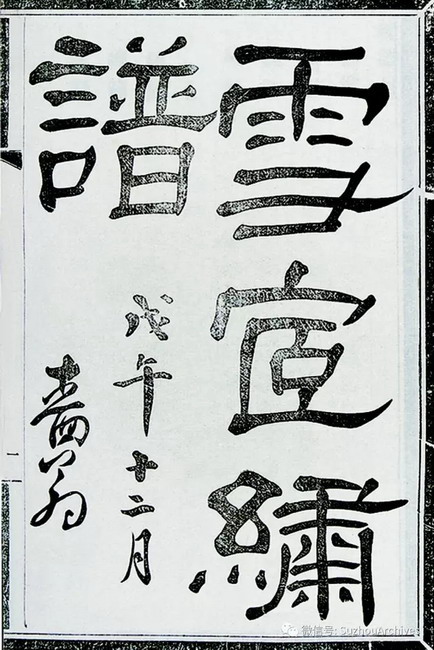 雪宧繡
譜
戊午十二月
嗇翁
一
微信号: SuzhouArchives